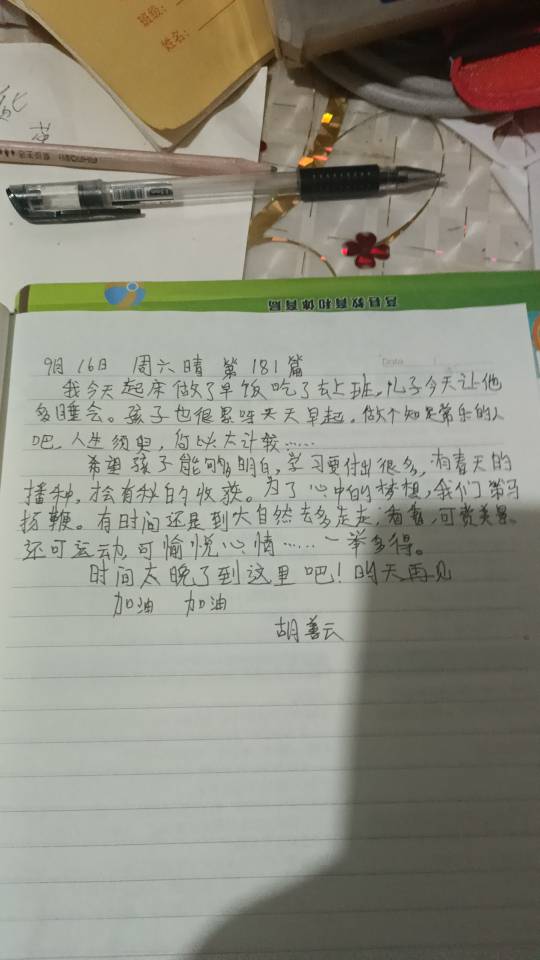 班级:
姓名:
9月16日 周六晴 第181篇
我今天起床做了早饭吃了去上班,儿子今天让他
多睡会。孩子也很累呀天天早起,做个知足常乐的人
吧,人生须臾,何以太计较……
希望孩子能够多明白,学习要付出很多,有春天的
播种,才会有秋的收获。为了心中的梦想,我们策马
扬鞭。有时间还是到大自然去多走走,看看,可赏美景,
还可运动,可愉悦心情……一举多得。
时间太晚了到这里吧!明天再见
加油 加油
胡善云